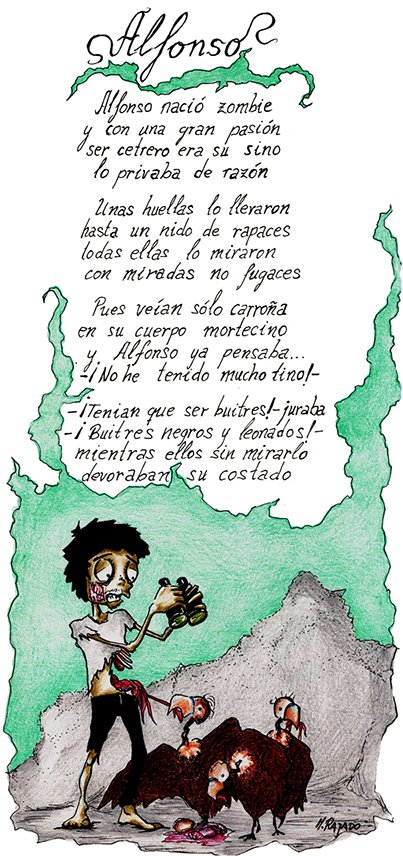 Alfonso
Alfonso nació zombie
y con una gran pasión
ser cetrero era su sino
lo privaba de razón
Unas huellas lo llevaron
hasta un nido de rapaces
todas ellas lo miraron
con miradas no fugaces
Pues veían sólo carroña
en su cuerpo mortecino
y Alfonso ya pensaba...
-¡No he tenido mucho tino!-
-¡Tenian que ser buitres!- juraba
-¡Buitres negros y leonados!-
mientras ellos sin mirarlo
devoraban su costado
H. RAJADO